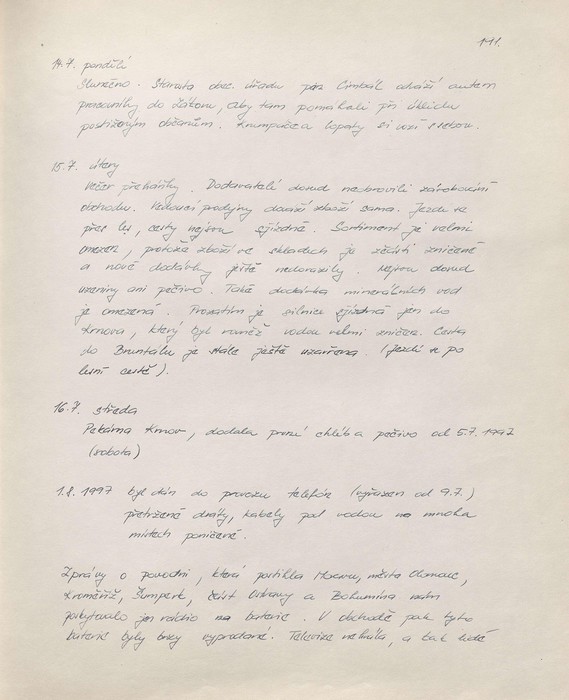 191.
14.7. pondělí
Slunečno. Starosta obec. úřadu pan Cimbál odváží autem
pracovníky do Zátoru, aby tam pomáhali při úklidu
postiženým občanům. Krumpáče a lopaty si vozí sebou.
15.7. úterý
Večer přeháňky. Dodavatelé dosud neobnovili zásobování
obchodu. Vedoucí prodejny dováží zboží sama. Jezdí se
přes les, cesty nejsou sjízdné. Sortiment je velmi
omezen, protože zboží ve skladech je zčásti zničené
a nové dodávky ještě nedorazily. Nejsou dosud
uzeniny ani pečivo. Také dodávka minerálních vod
je omezena. Prozatím je silnice sjízdná jen do
Krnova, který byl rovněž vodou velmi zničen. Cesta
do Bruntálu je stále ještě uzavřena. (Jezdí se po
lesní cestě).
16.7. středa
Pekárna Krnov, dodala první chléb a pečivo od 5.7.1997
(sobota)
1.8.1997 byl dán do provozu telefon (vyřazen od 9.7.)
přetržené dráty, kabely pod vodou na mnoha
místech poničené.
Zprávy o povodni, která postihla Moravu, města Olomouc,
Kroměříž, Šumperk, část Ostravy a Bohumína nám
poskytovalo jen rádio na baterie. V obchodě pak tyto
baterie byly brzy vyprodané. Televize nehrála, a tak lidé